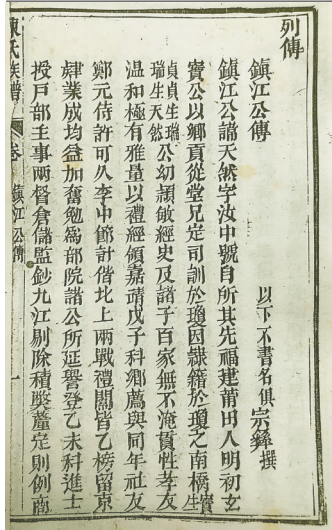 列傳
鎮江公傳
以下不書名俱宗彝撰
鎮江公諱天然字汝中號自所其先福建莆田人明初玄
寶公以鄉貢從堂兄定司訓於瓊因隸籍於瓊之南橋寶生
貞貞生瑞瑞生天然公幼頴敏經史及諸子百家無不淹貫性孝友
温和極有雅量以禮經領嘉靖戊子科鄉薦與同年社友
鄭元侍許可久李中節計偕北上兩戰禮闈皆乙榜留京
肄業成均益加奮勉為部院諸公所延譽登乙未科進士
授戸部主事兩督倉儲監鈔九江剔除積獘釐定則例商
陳氏族譜 卷 鎮江公傳 一